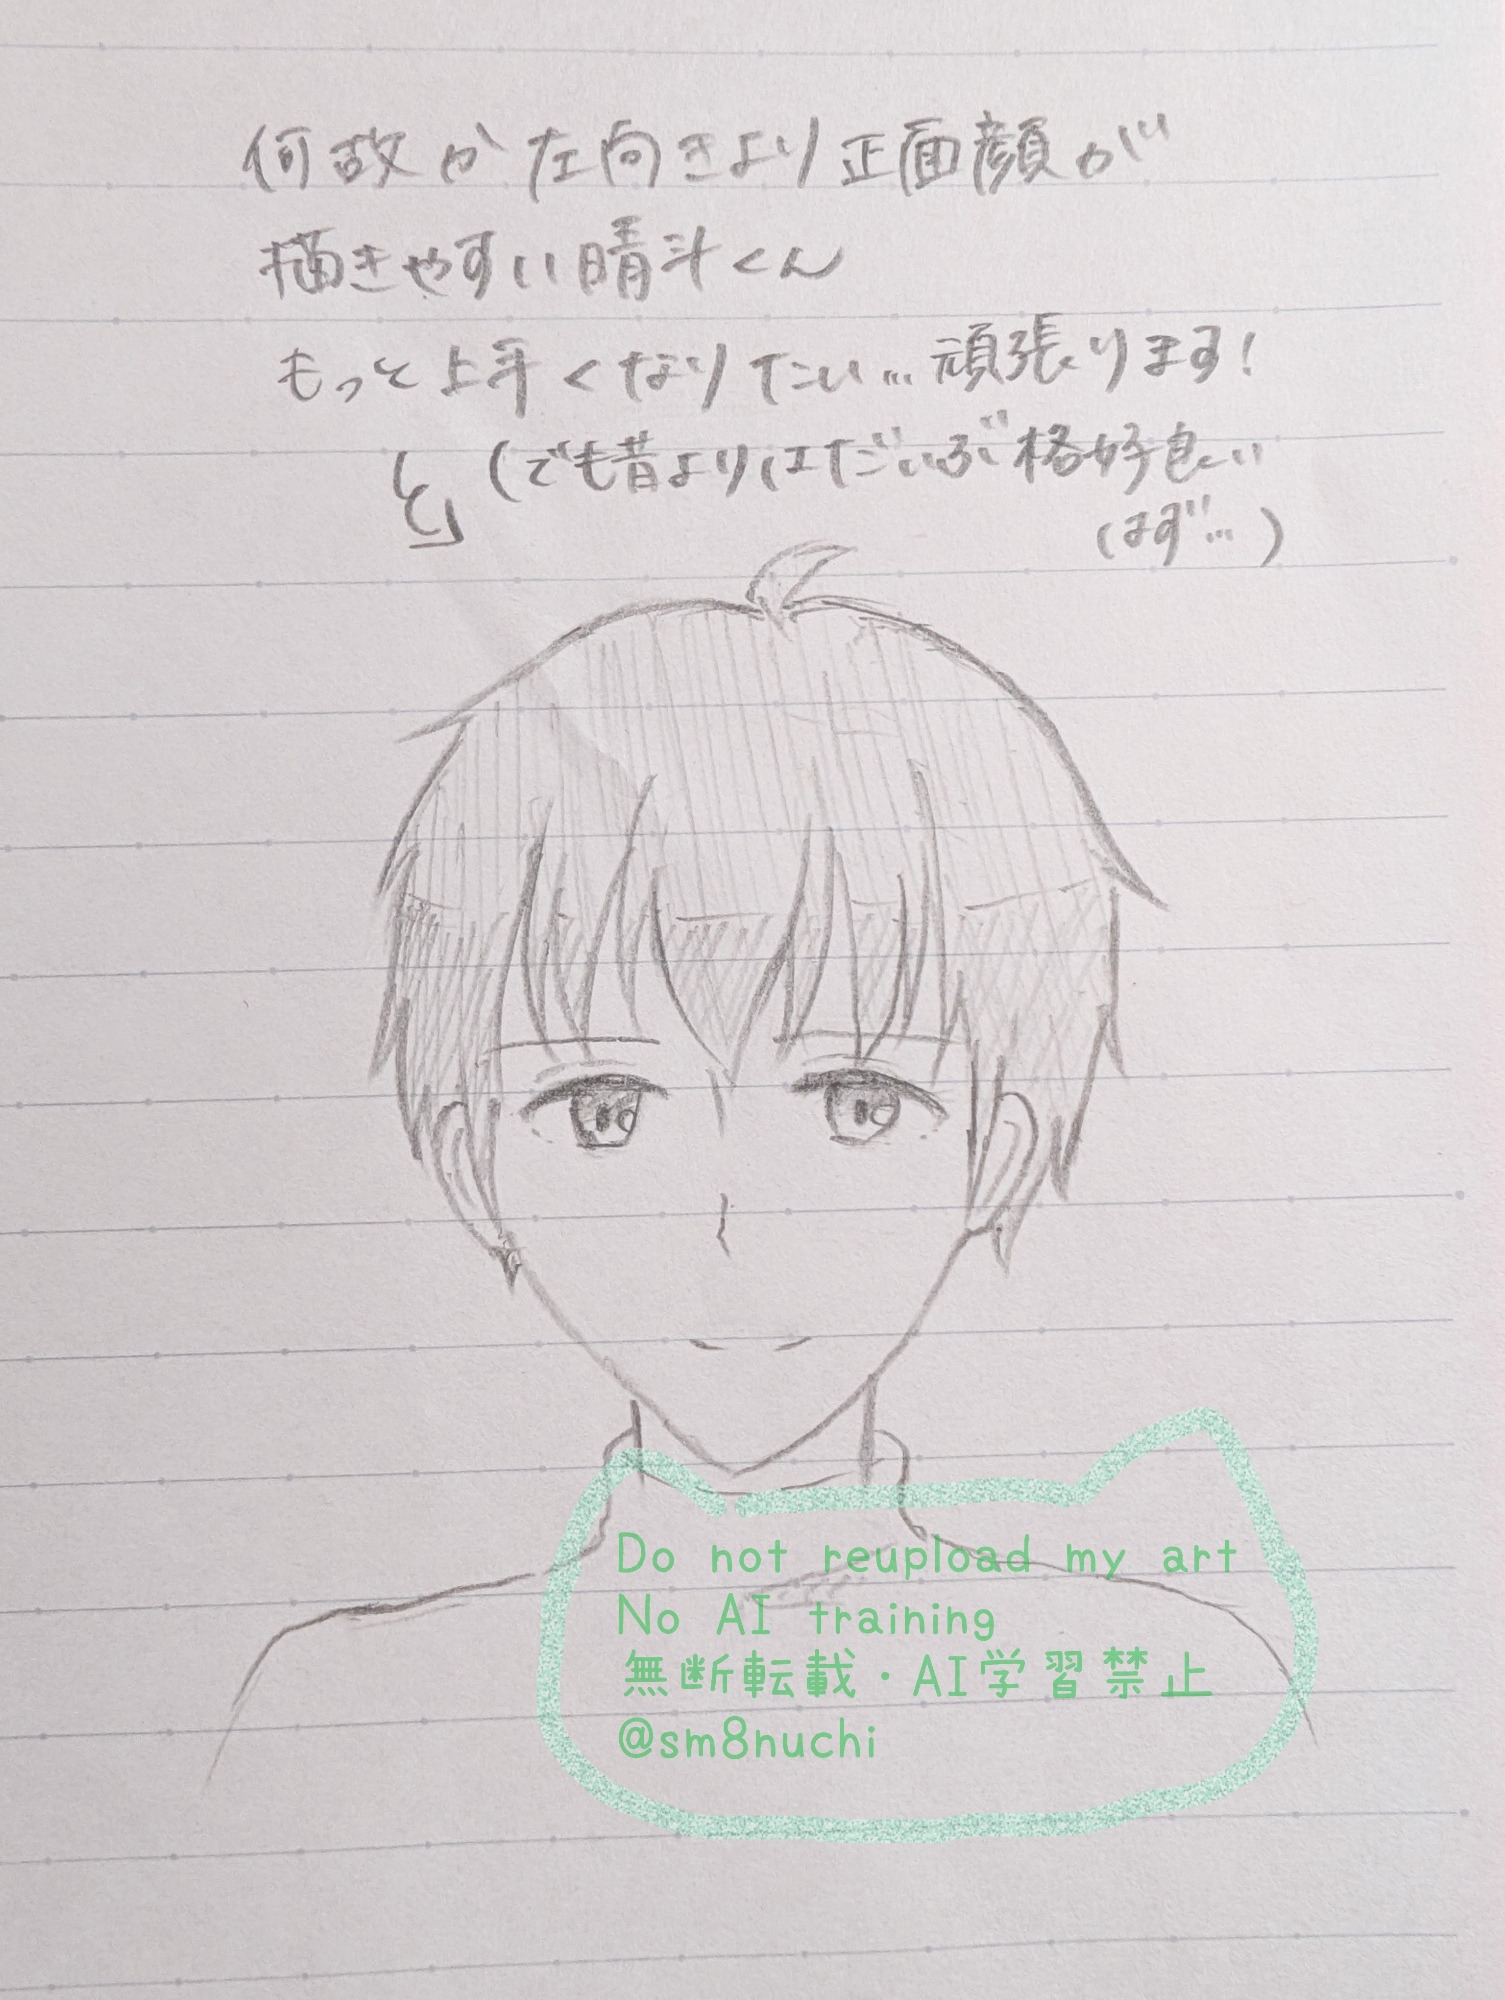 何故か左向きより正面顔が
描きやすい晴斗くん
もっと上手くなりたい…頑張ります!
(でも昔よりはだいぶ格好良い
(はず…)
Do not reupload my art
No AI training
無断転載・AI学習禁止
@sm8nuchi